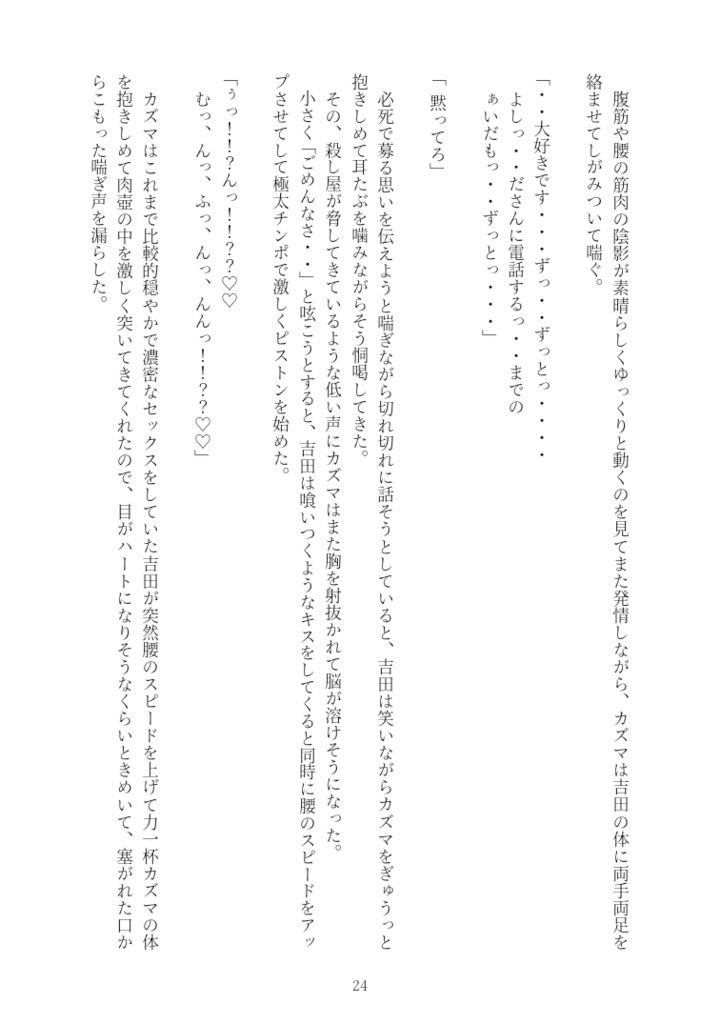 腹筋や腰の筋肉の陰影が素晴らしくゆっくりと動くのを見てまた発情しながら、カズマは吉田の体に両手両足を
絡ませてしがみついて喘ぐ。
「・・大好きです・・・ずっ・・ずっとっ・・・・
よしっ・・ださんに電話するっ・・までの
ぁいだもっ・・ずっとっ・・・」
必死で募る思いを伝えようと喘ぎながら切れ切れに話そうとしていると、吉田は笑いながらカズマをぎゅうっと
抱きしめて耳たぶを噛みながらそう恫喝してきた。
「黙ってろ」
その、殺し屋が脅してきているような低い声にカズマはまた胸を射抜かれて脳が溶けそうになった。
小さく「ごめんなさ・・」と呟こうとすると、吉田は喰いつくようなキスをしてくると同時に腰のスピードをアッ
プさせてして極太チンポで激しくピストンを始めた。
「ぅっ！！？んっ！！？？♡♡
むっ、んっ、ふっ、んっ、んんっ！！？？♡♡」
カズマはこれまで比較的穏やかで濃密なセックスをしていた吉田が突然腰のスピードを上げて力一杯カズマの体
を抱きしめて肉壺の中を激しく突いてきてくれたので、目がハートになりそうなくらいときめいて、塞がれた口か
らこもった喘ぎ声を漏らした。
24